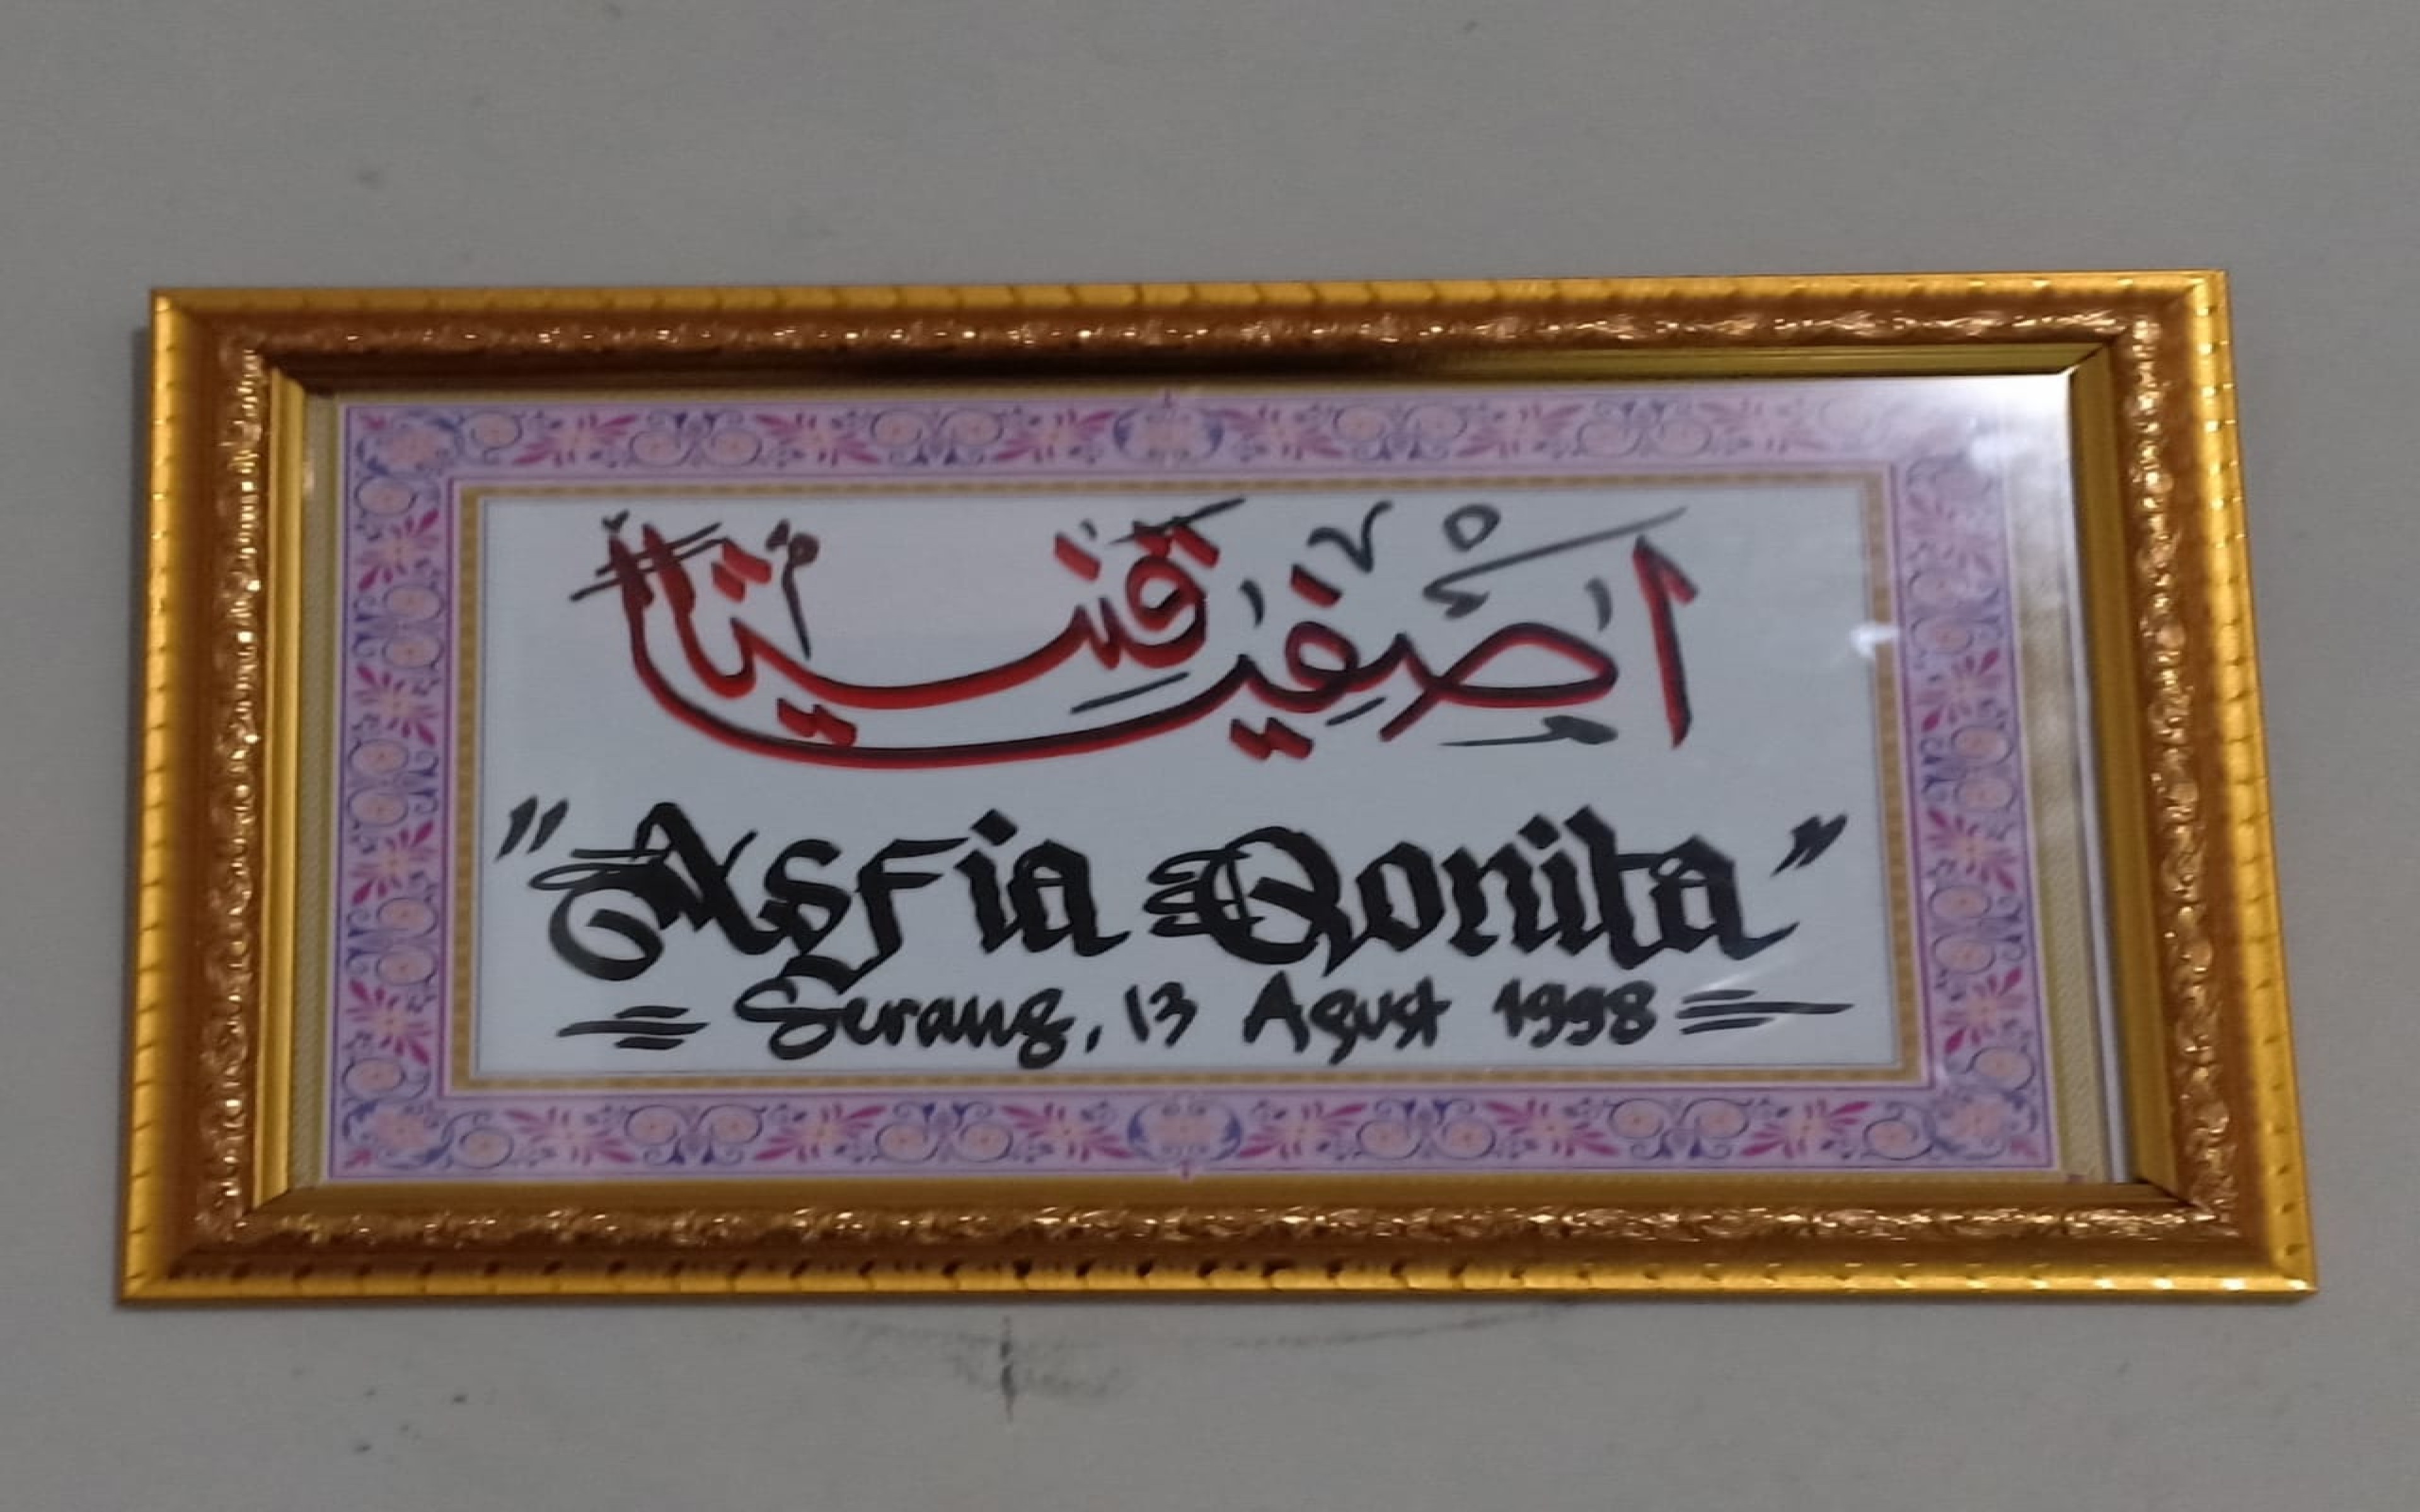 اصفيا قنيتا
"Asfia Qonita"
Serang, 13 Agust 1998